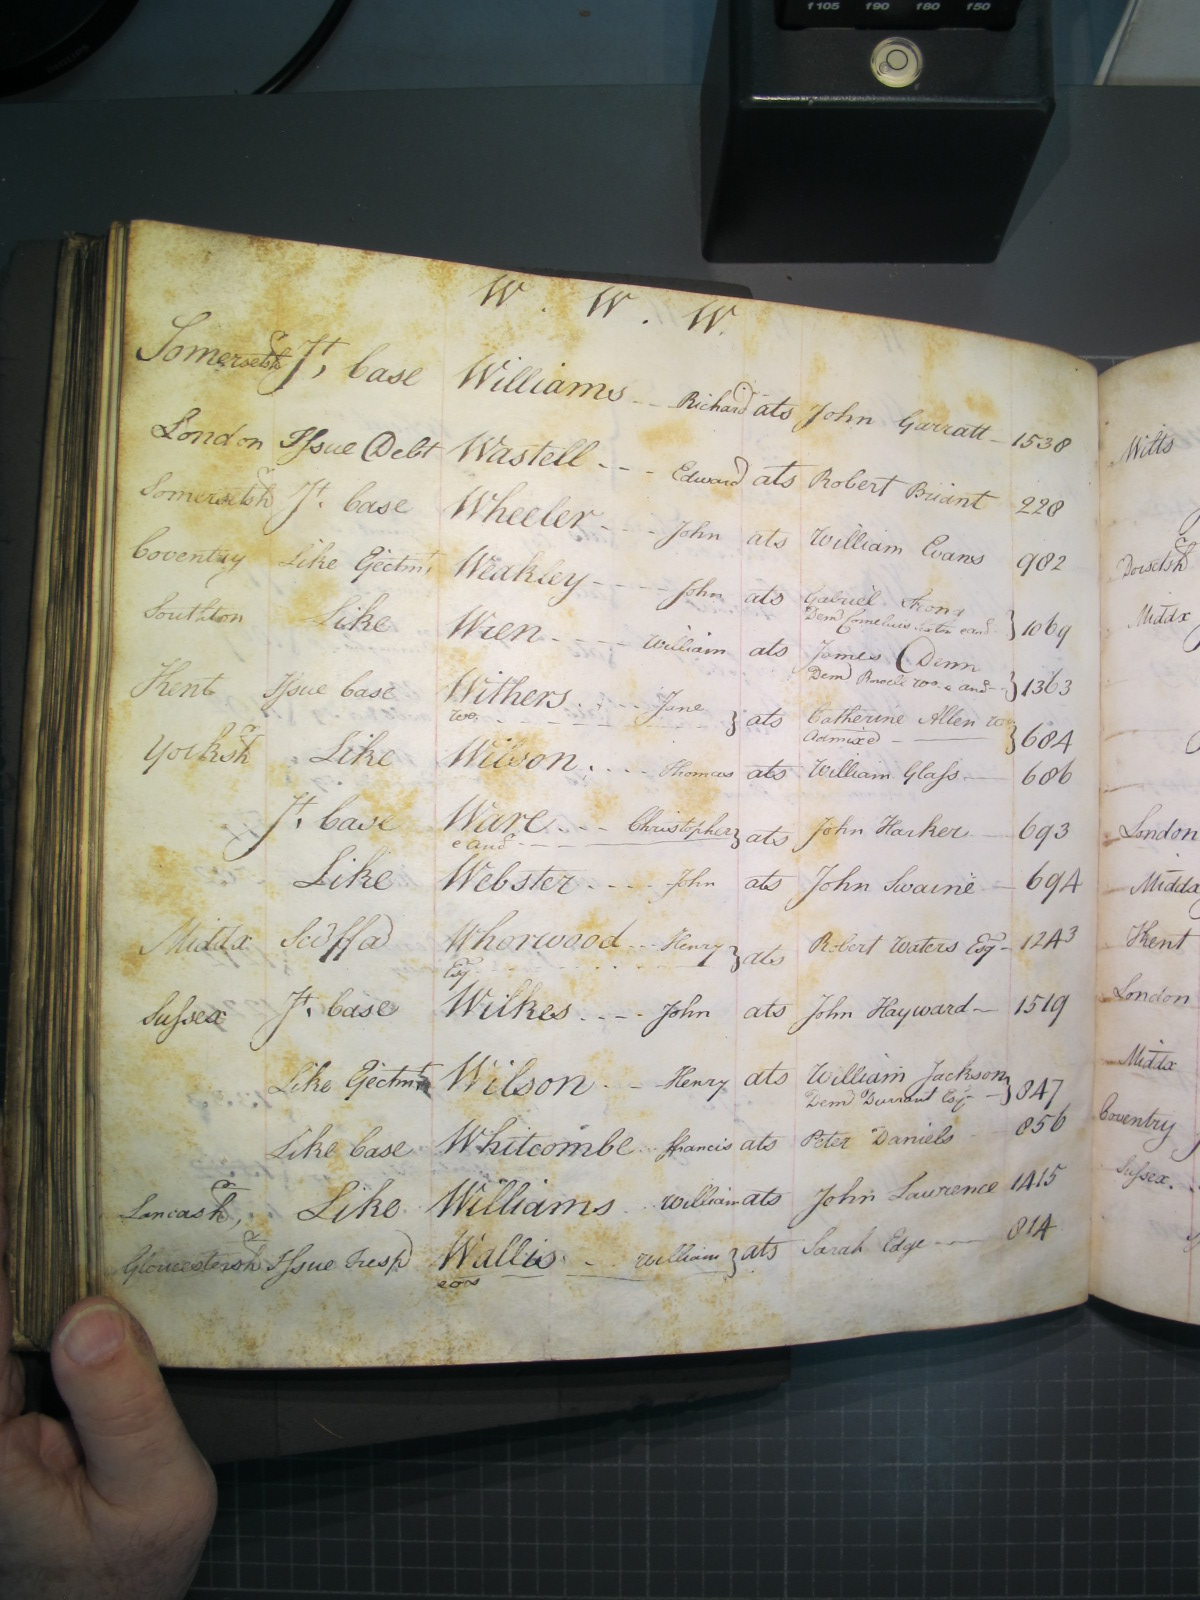 f105 f90 f80 f50
W. W. W.
Somersetsh Jt. Case Williams -- Richard ats John Garratt - 1538
London Issue Debt Wastell --- Edward ats Robert Briant 228
Somersetsh Jt. Case Wheeler --- John ats William Evans 982
Coventry Like Ejectmt Weakley ---- John ats Gabriel
Dem Cornelius and } 1069
Southton Like Wren ---- William ats James (Denn
Dem and } 1363
Kent Issue Case Withers ---- Jane } ats Catherine Allen wo
wo. Admixed } 684
Yorksh Like Wilson .... Thomas ats William Glass — 686
Jt. Case Ware ... Christopher } ats John Harker — 693
e and
Like Webster .... John ats John Swaine — 694
Middx Sci ffa Whorwood ... Henry } ats Robert Waters Esq - 1243
Esq
Sussex Jt. Case Wilkes .... John ats John Hayward — 1519
Like Ejectmt Wilson --- Henry ats William Jackson
Dem Durrant Esq } 847
Like Case Whitcombe Francis ats Peter Daniels 856
Lancash, Like Williams William ats John Lawrence 1415
Gloucestersh Issue Tresp Wallis William } ats Sarah Edge ---- 814
eors
Wilts
Dorsetsh
Middx
London
Middx
Kent
London
Middx
Coventry
Sussex.